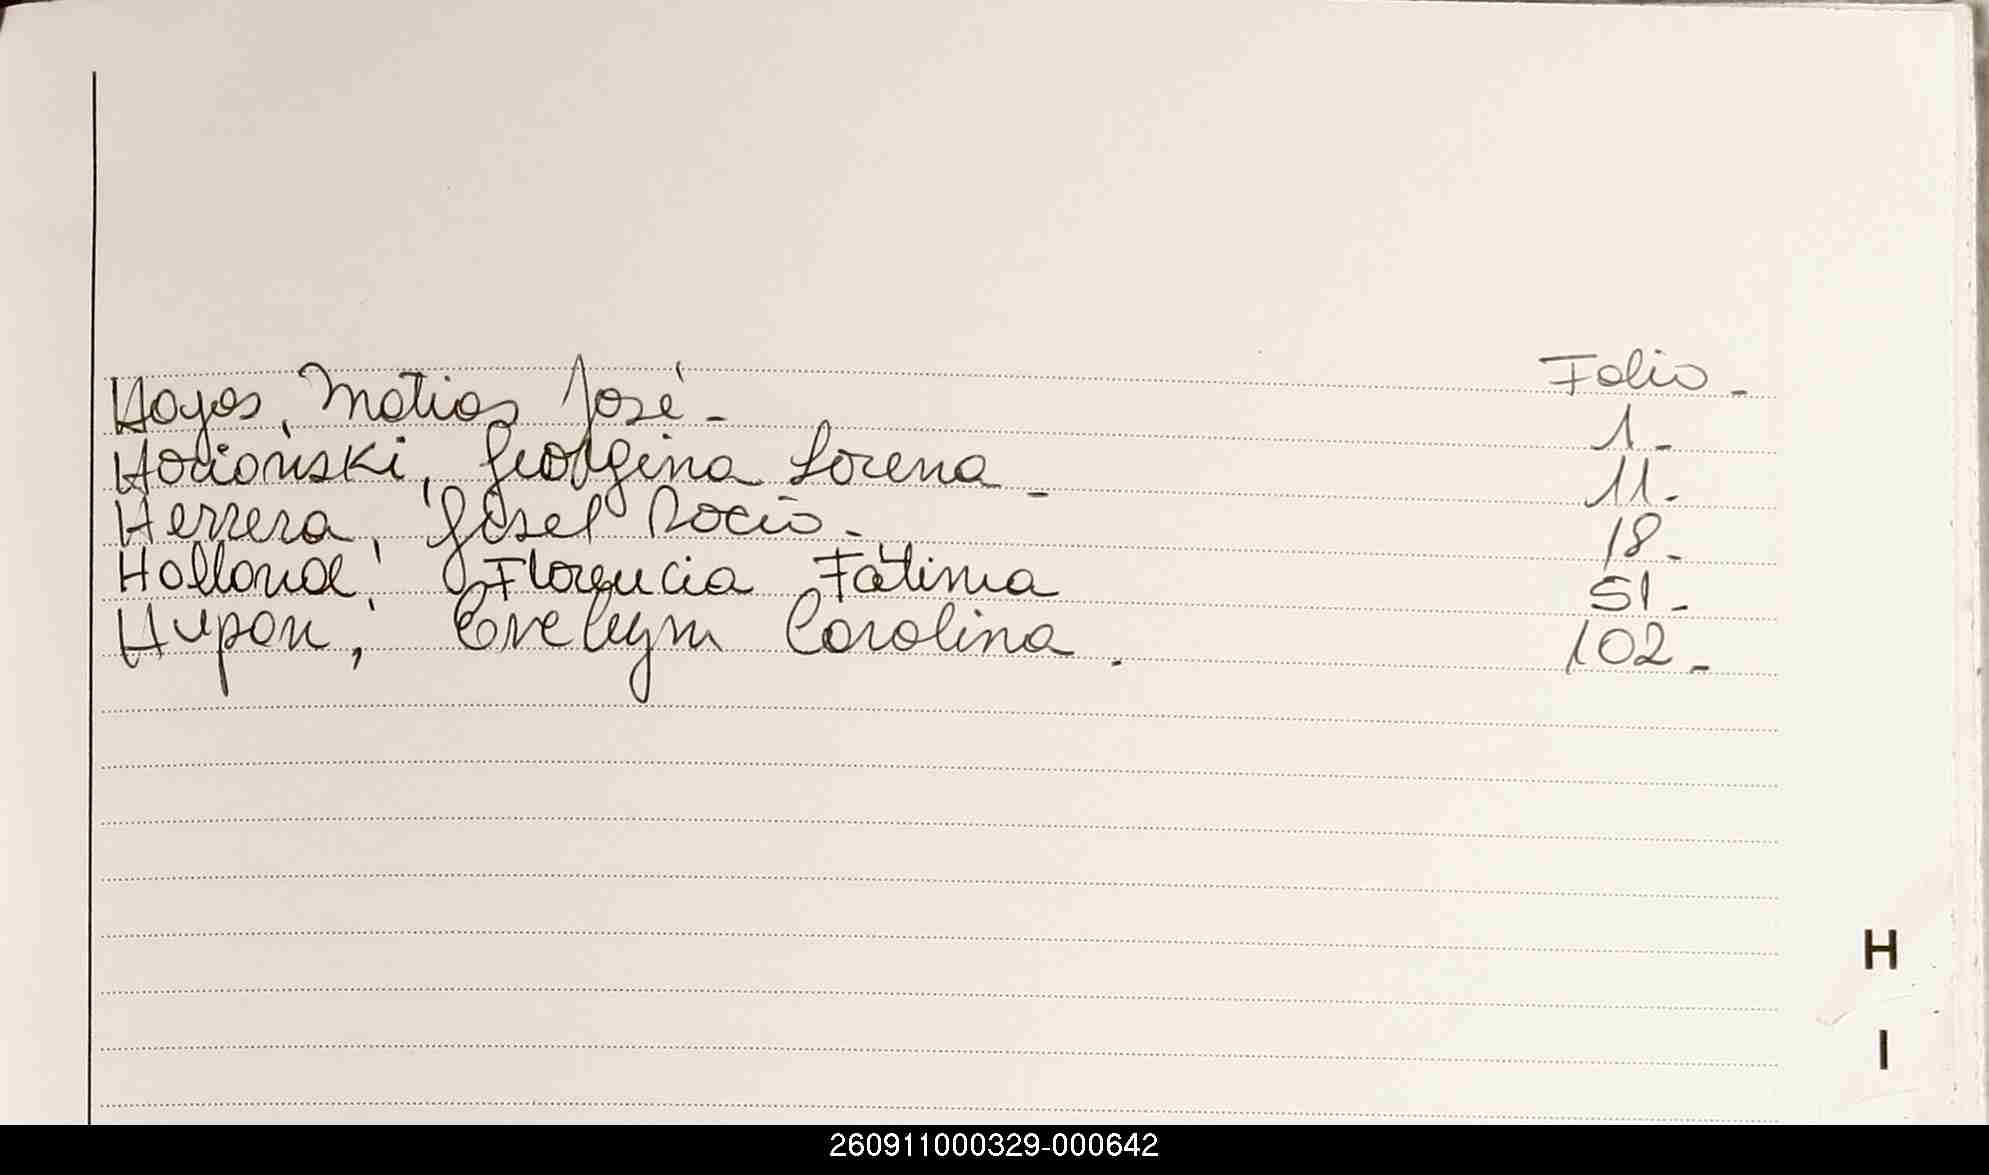 Folio -
Hoyos, Matias José - 1 -
Georgina Lorena - 11 -
Herrera, Gisel Rocio - 18 -
Holland, Florencia Fátima 51 -
Hupan, Evelyn Carolina . 102 -
H
I
260911000329-000642